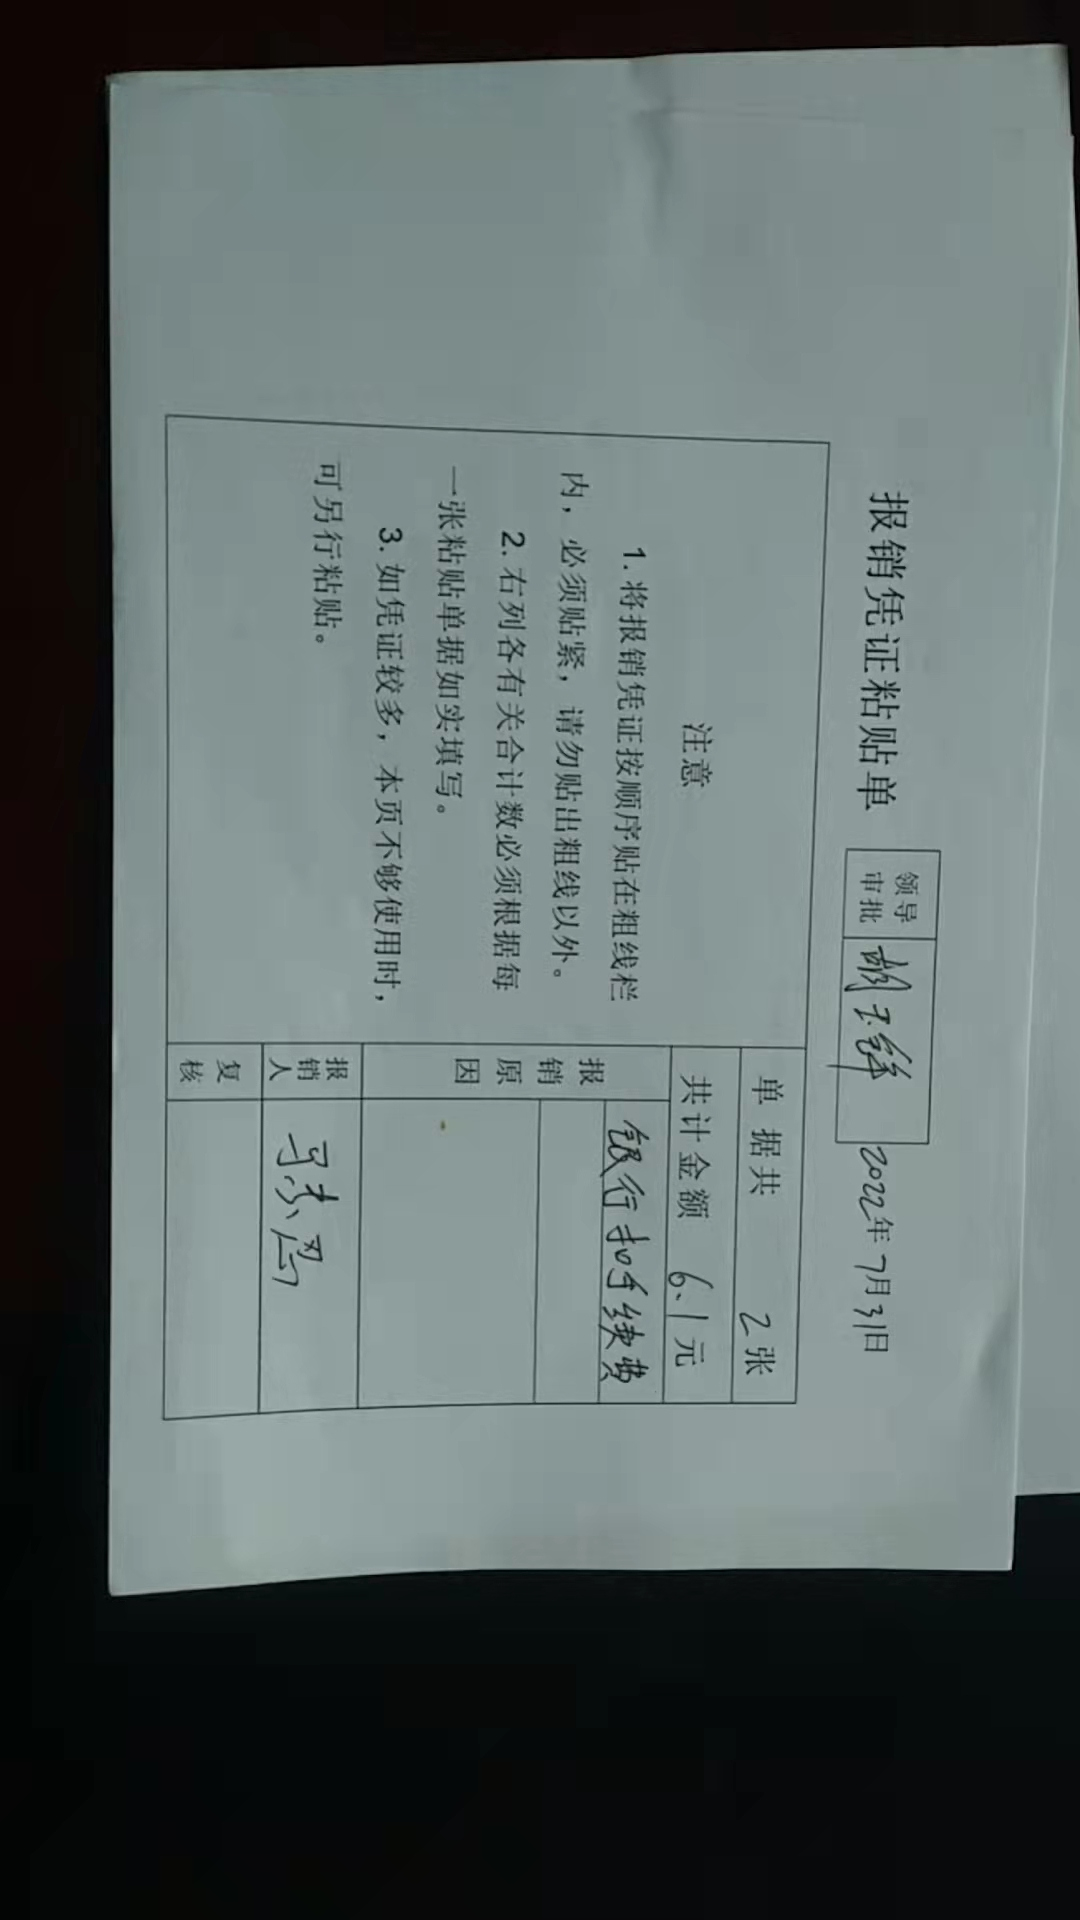 报销凭证粘贴单
领导
审批
2022年7月31日
注意
1. 将报销凭证按顺序贴在粗线栏
内，必须贴紧，请勿贴出粗线以外。
2. 右列各有关合计数必须根据每
一张粘贴单据如实填写。
3. 如凭证较多，本页不够使用时，
可另行粘贴。
单据共 2张
共计金额 6.1元
报销原因
银行扣手续费
报销人
复核